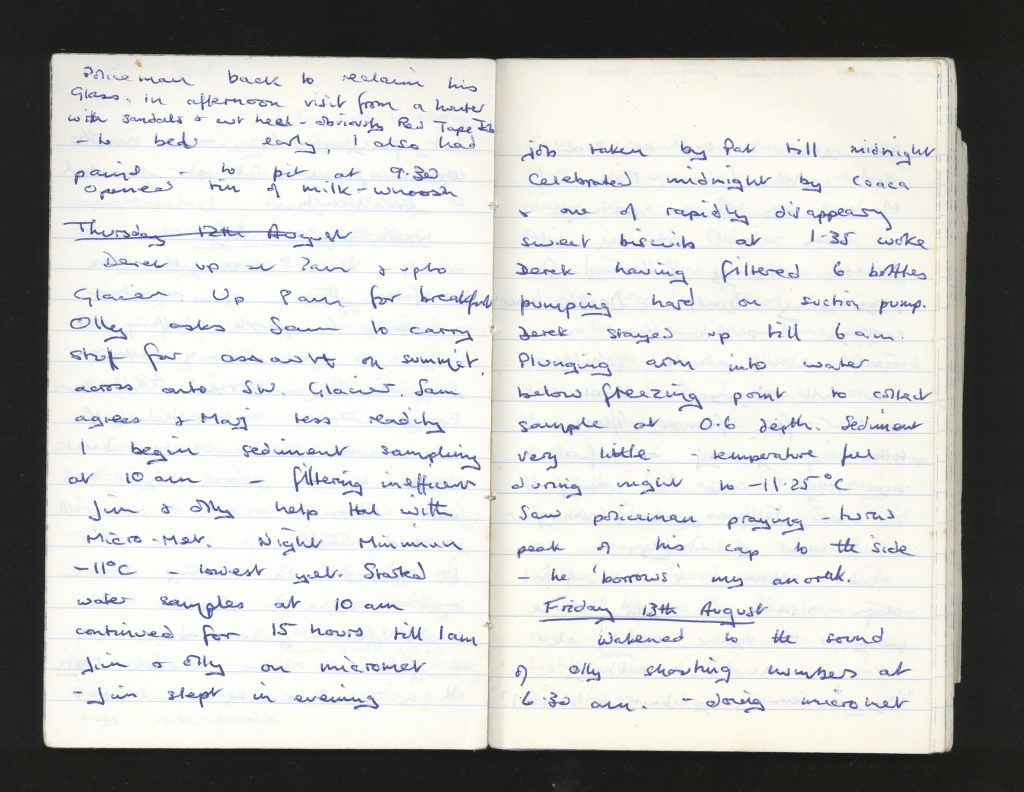 Policeman back to reclaim his
Glass. in afternoon visit from a hunter
with sandals & cut heel - obviously Red Tape Job
- to bed early, I also had
pains - to pit at 9.30
opened tin of milk - whoosh
Thursday 12th August
Derek up at 7am & up to
Glacier. Up 8am for breakfast
Olly asks Sam to carry
stuff for assault on summit
across onto S.W. Glacier. Sam
agrees & Maj less readily
I begin sediment sampling
at 10 am - filtering inefficient
Jim & Olly help Hal with
Micro-Met. Night Minimum
-11°C - lowest yet. Started
water samples at 10 am
continued for 15 hours till 1am
Jim & Olly on micromet
- Jim slept in evening
job taken by Pat till midnight
Celebrated midnight by Coaca
& one of rapidly disappeary
sweet biscuits at 1.35 woke
Derek having filtered 6 bottles
pumping hard on suction pump.
Derek stayed up till 6 am.
Plunging arm into water
below freezing point to collect
sample at 0.6 depth. Sediment
very little - temperature fell
during night to -11.25°C
Saw policeman praying - turns
peak of his cap to the side
- he 'borrows' my anorak.
Friday 13th August
Wakened to the sound
of Olly shouting numbers at
6.30 am. - doing micromet